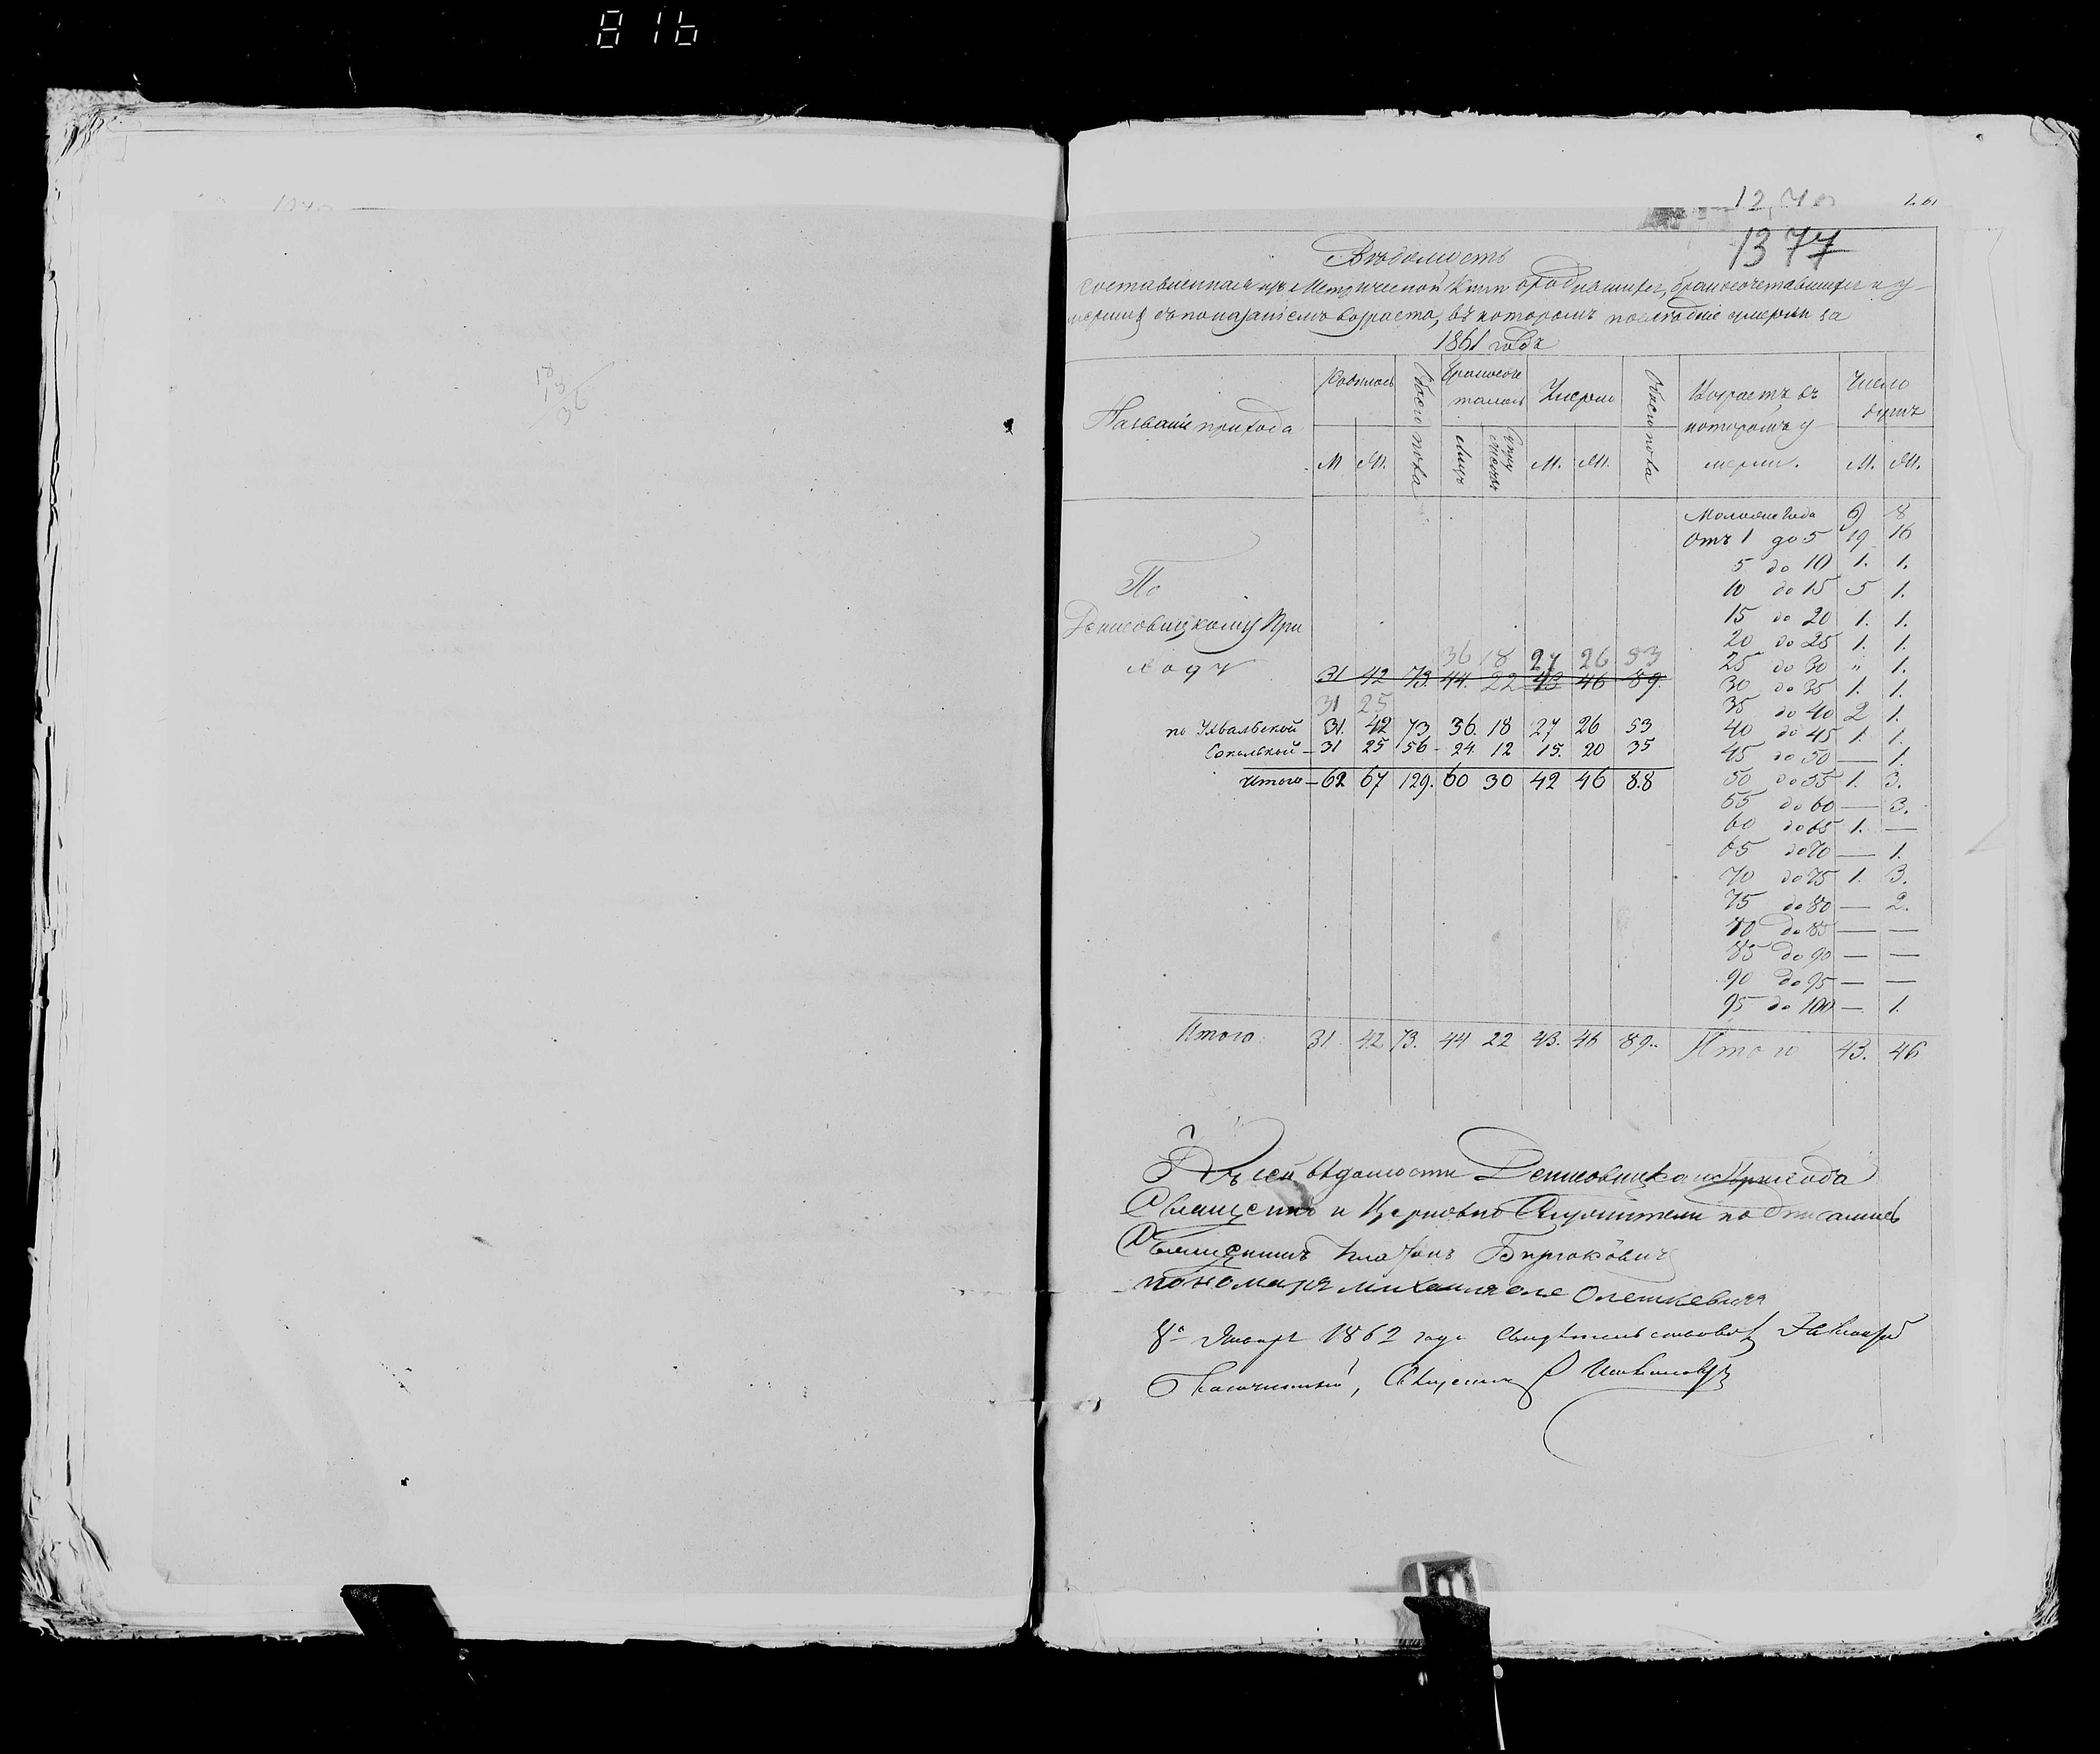 816
18
18
36
1377
Вѣдомость
составленная изъ Метрической Книги о родившихся, бракосочетавшихся и у-
мершихъ съ показаніемъ возраста, въ которомъ послѣдніе умерли за
1861 годъ
Названіе прихода
Родилось
Обоего пола
Бракосоче
талось
Умерло
Обоего пола
Возрастъ въ
которомъ у
мерли.
Число
душъ
М Ж.
Лицъ
М. Ж.
М. Ж.
Моложе Года 9 8
Отъ 1 до 5 19 16
5 до 10 1. 1.
По
10 до 15 5 1.
Денисовицкому При
15 до 20 1. 1.
20 до 25 1. 1.
ходу
36 18 27 26 53
25 до 30 " 1.
31 42 73. 44. 22 43 46 89.
30 до 35 1. 1.
31 25
35 до 40 2 1.
по Ухвальской 31. 42 73 36. 18 27 26 53
40 до 45 1. 1.
Сокольской – 31 25 56 - 24. 12 15. 20 35
45 до 50 — 1.
Итого – 62 67 129. 60 30 42 46 88
50 до 55 1. 3.
55 до 60 — 3.
60 до 65 1. —
65 до 70 — 1.
70 до 75 1. 3.
75 до 80 — 2.
80 до 85 — —
85 до 90 — —
90 до 95 — —
95 до 100 — 1.
Итого 31. 42 73. 44 22 43. 46 89. Итого 43. 46
Къ сей вѣдомости Денисовицкаго Прихода
Священно и Церковно Служители подписались
Священникъ Платонъ Бирюковичъ
пономаря Михаила Олешкевича
8го Января 1862 года Свидѣтельствовалъ
Благочинный, Священникъ